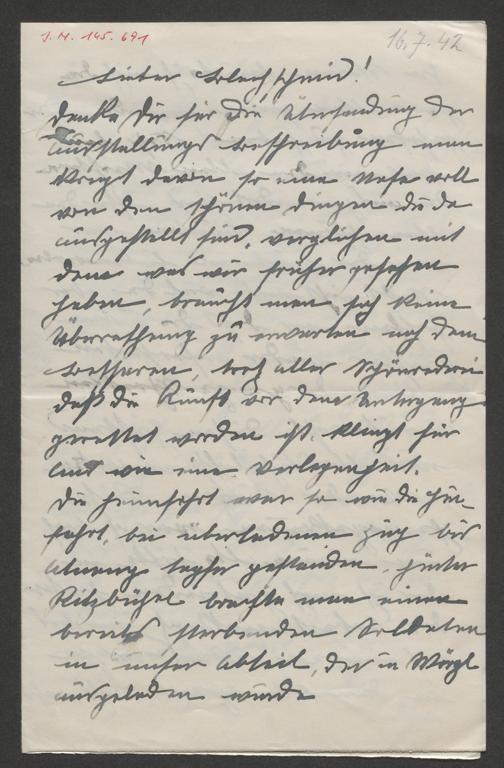 J.N. 145.691
16.7.42
Lieber Blechschmid!
Danke Dir für die Übersendung der
Ausstellungs beschreibung man
kriegt davon so eine Nase voll
von den schönen dingen die da
ausgestellt sind, verglichen mit
dem was wir früher gesehen
haben, braucht man sich keine
Überraschung zu erwarten nach dem
, trotz aller Schönrederei
daß die Kunst vor dem Untergang
gerettet worden ist. klingt für
uns wie eine Verlegenheit.
Die heimfahrt war so wie die hin-
fahrt, bei überladenem zug bis
gestanden, hinter
Kitzbühel brachte man einen
bereits sterbenden Soldaten
in unser Abteil, der in Wörgl
ausgeladen wurde